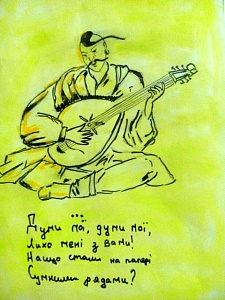 ***
Думи мої, думи мої,
Лихо мені з вами!
Нащо стали на папері
Сумними рядами?